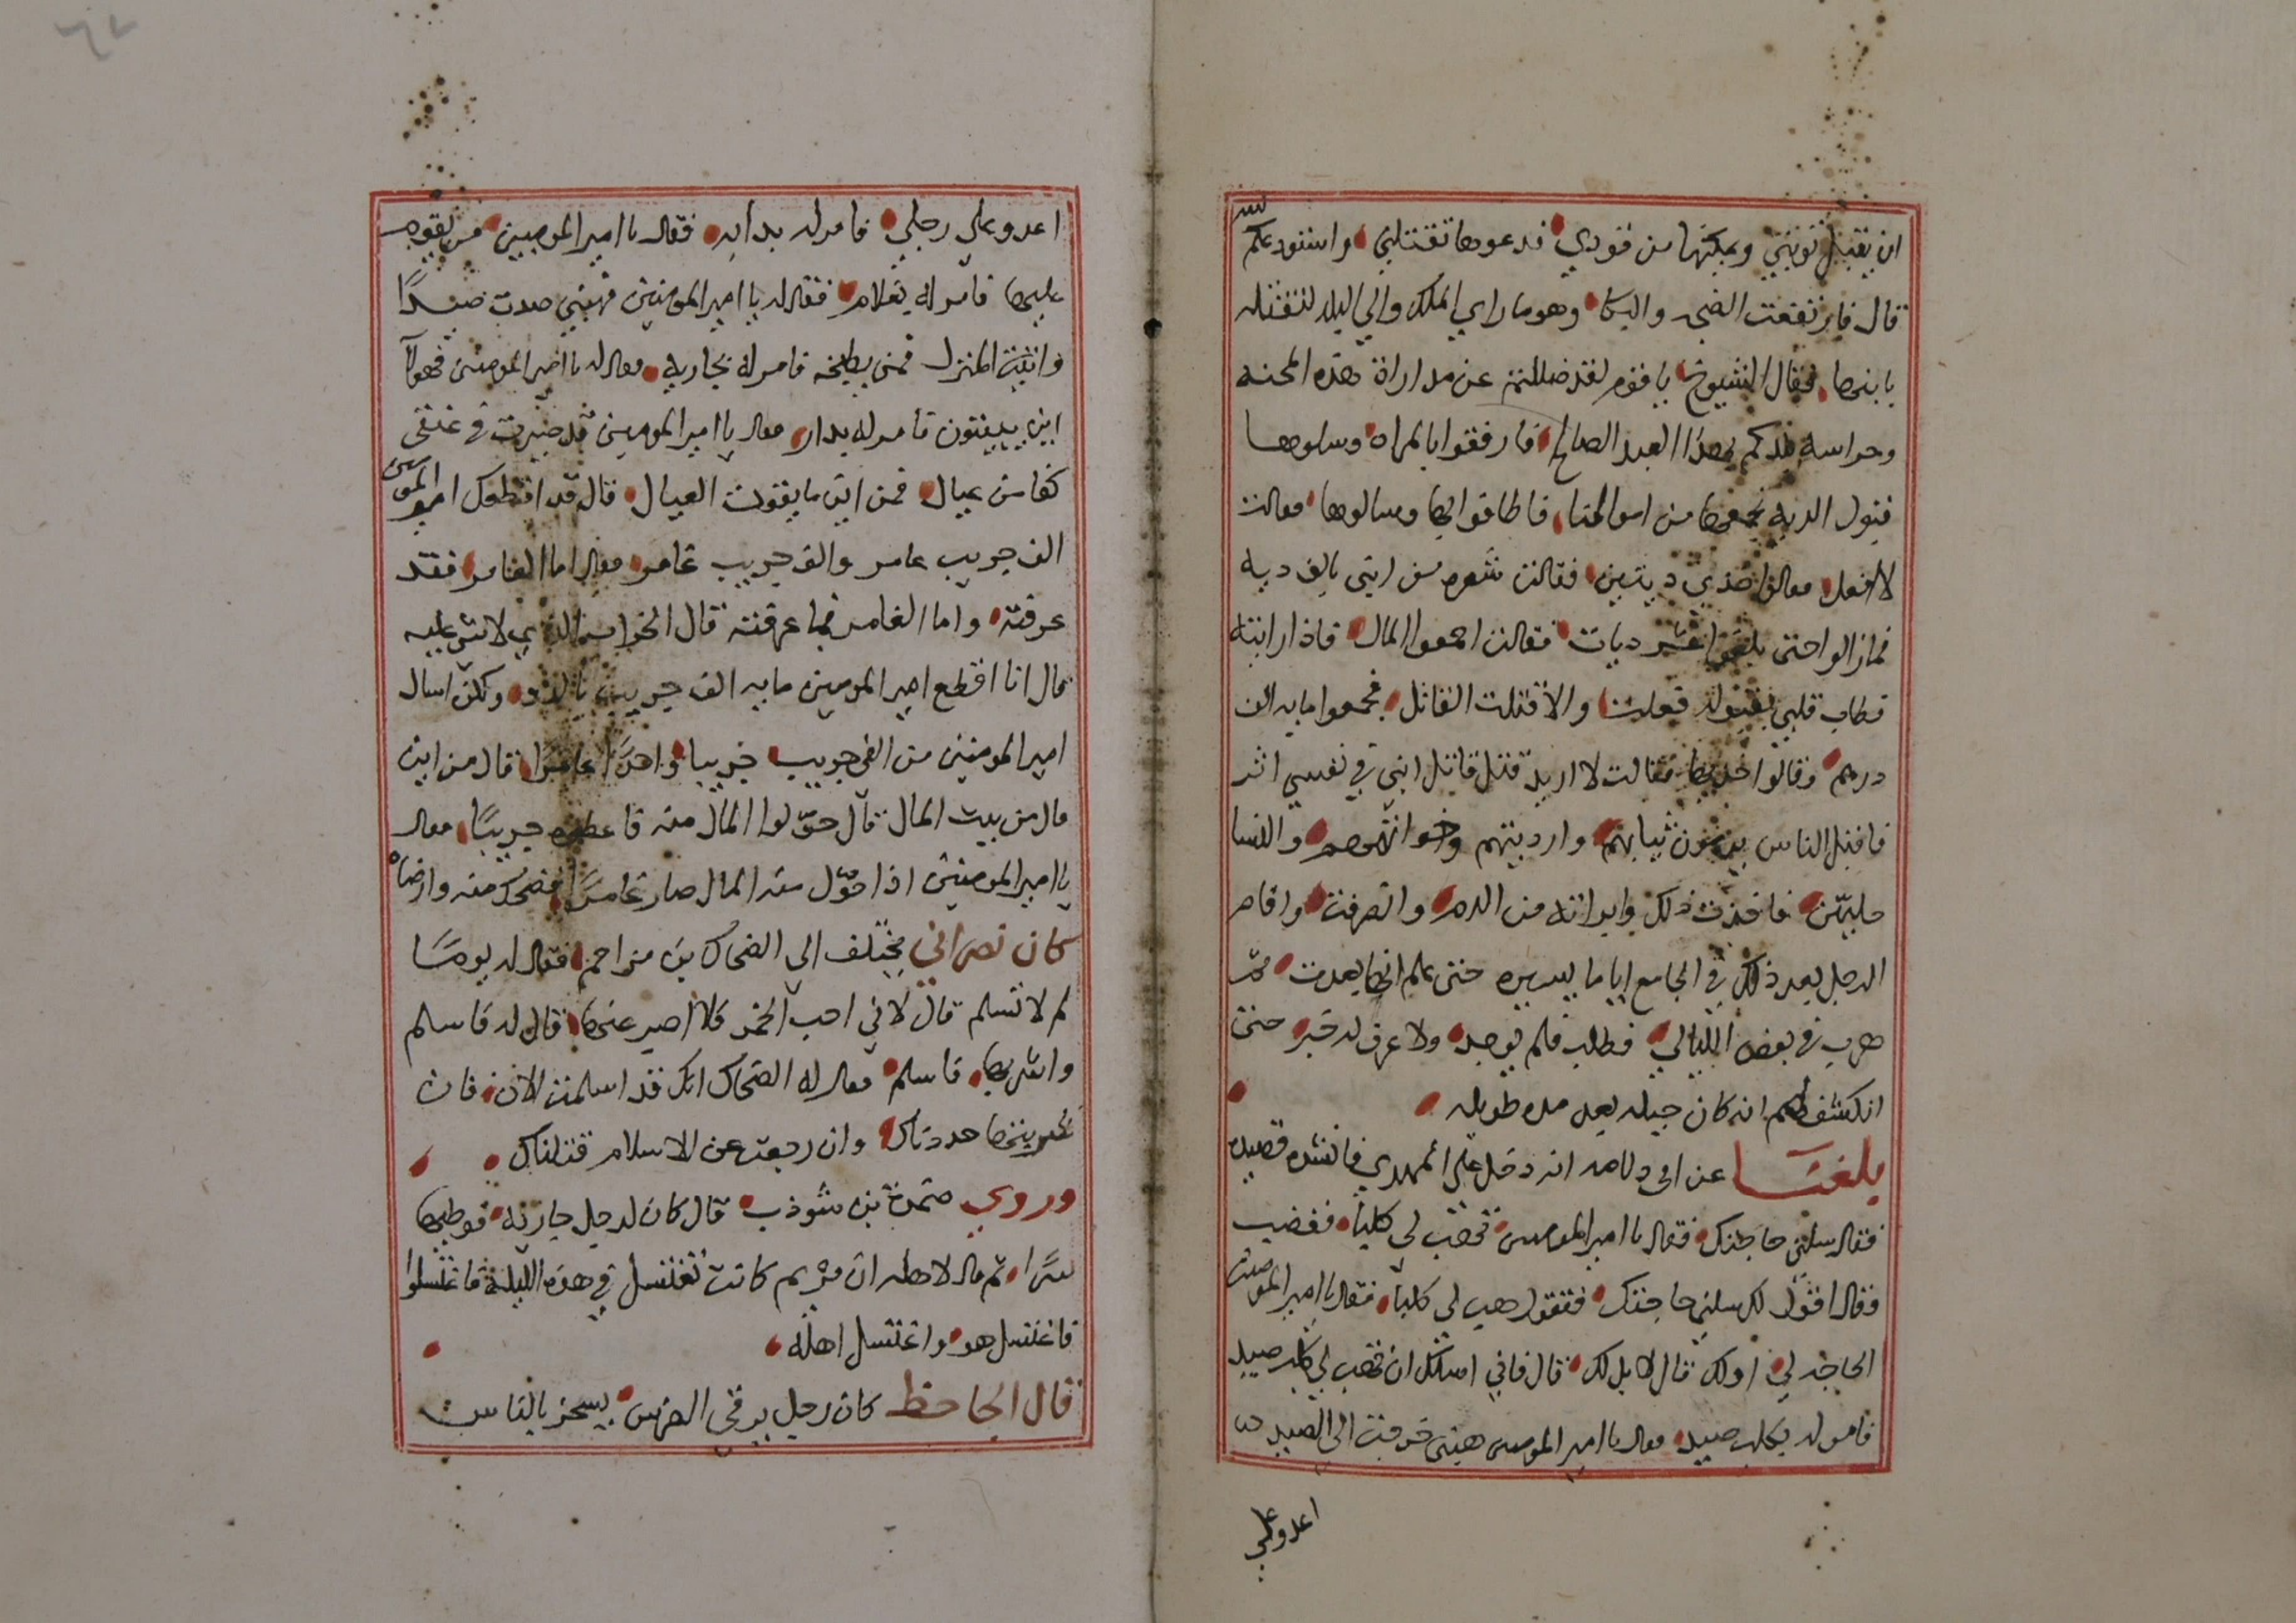 ان يقبل توبتي ويمكنها من قودي فدعوها تقتلني واستودعكم الله
قال فارتفعت الضجه والبكا وهو ما راي الملك واتي اليه لتقتله
بابنها فقال الشيوخ يا قوم لقد ضللتم عن مداراة هذه المحنه
وحراسه بلدكم بهذا العبد الصالح فارفقوا بالمراه وسلوها
قبول الديه نجمعها من اموالنا فاطافوا بها وسالوها فقالت
لا افعل فقالوا خذي ديتين فقالت شعره من ابني بالف ديه
فما زالوا حتى بلغوا عشر ديات فقالت اجمعوا المال فاذا رايته
فطاب قلبي بقبوله قبلت والا قتلت القاتل فجمعوا مايه الف
درهم وقالوا خذيها فقالت لا اريد قتل قاتل ابني في نفسي اثر
فاقبل الناس يرمون ثيابهم وارديتهم وخواتمهم والنسا
حليهن فاخذت ذلك وابراته من الدم وانصرفت واقام
الرجل بعد ذلك في الجامع اياما يسيره حتى علم انها بعدت ثم
هرب في بعض الليالي فطلب فلم يوجد ولا عرف له خبر حتى
انكشف لهم انه كان حيله بعد مده طويله
بلغنا عن ابي دلامه انه دخل على المهدي فانشده قصيده
فقال سلني حاجتك فقال يا امير المومنين تهب لي كلبا فغضب
فقال اقول لك سلني حاجتك فتقول هب لي كلبا فقال يا امير المومنين
الحاجه لي او لك قال لا بل لك قال فاني اسئلك ان تهب لي كلب صيد
فامر له بكلب صيد فقال يا امير المومنين هبني خرجت الى الصيد
اعدو علي
اعدو علي رجلي فامر له بدابه فقال يا امير المومنين فمن يقوم
عليها فامر له بغلام فقال له يا امير المومنين فهبني صدت صيدا
واتيت المنزل فمن يطبخه فامر له بجاريه فقال له يا امير المومنين فهولا
اين يبيتون فامر له بدار فقال يا امير المومنين قد صيرت في عنقي
كفا من عيال فمن اين ما يقوت العيال قال قد اقطعك امير المومنين
الف جريب عامر والف جريب غامر فقال اما العامر فقد
عرفته واما الغامر فما عرفته قال الخراب الذي لا شي عليه
قال انا اقطع امير المومنين مايه الف جريب بالدو ولكن اسال
امير المومنين من الفي جريب جريبا واحدا عامرا قال من اين
قال من بيت المال قال حولوا المال منه فاعطوه جريبا فقال
يا امير المومنين اذا حول منه المال صار غامرا فضحك منه وارضاه
كان نصراني يختلف الي الضحاك بن مزاحم فقال له يوما
لم لا تسلم قال لاني احب الخمر فلا اصبر عنها قال له فاسلم
واشربها فاسلم فقال له الضحاك انك قد اسلمت الان فان
شربتها حددناك وان رجعت عن الاسلام قتلناك
وروي ضمرة بن شوذب قال كان لرجل جاريه فوطيها
سرا ثم قال لاهله ان مريم كانت تغتسل في هذه الليلة فاغتسلوا
فاغتسل هو واغتسل اهله
قال الجاحظ كان رجل يرقي الضرس يسخر بالناس